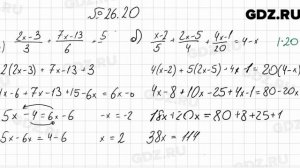 GDZ.RU
№26.20
) (2x-3)/3 + (7x-13)/6 = 5 б) (x-2)/5 + (2x-5)/4 + (4x-1)/20 = 4-x 1-20
2(2x-3)+7x-13+3 4(x-2)+5(2x-5)+4x-1=20(4-x)
x-6+7x-13+15-6x=6x-6 4x-8+10x-25+4x-1=80-20x
5x-4=6x-6 -x=-2 18x+20x=80+8+25+1
5x-6x=4-6 x=2 38x=114
GDZ.RU